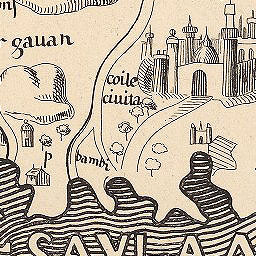 gauan
coile
ciuita
p
bambi
SAVLAA